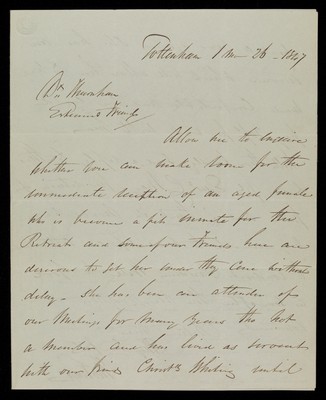 Tottenham 1 mo 26 - 1847
Dr. Thurnham
Esteemed Friend
Allow me to enquire
whether you can make room for the
immediate reception of an aged female
who is become a fit inmate for the
Retreat and some of our Friends here are
desirous to get her under thy care without
delay - She has been an attender of
our Meetings for many years tho not
a member and has lived as servant
with our friend Christr Whiting until